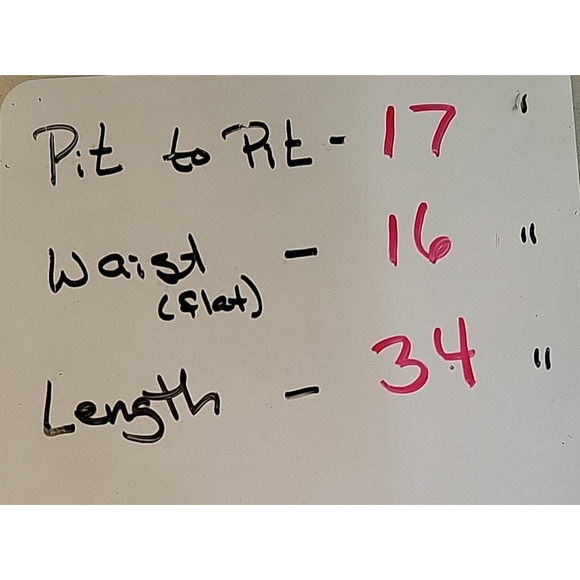 Pit to Pit - 17 "
Waist - 16 "
(flat)
Length - 34 "